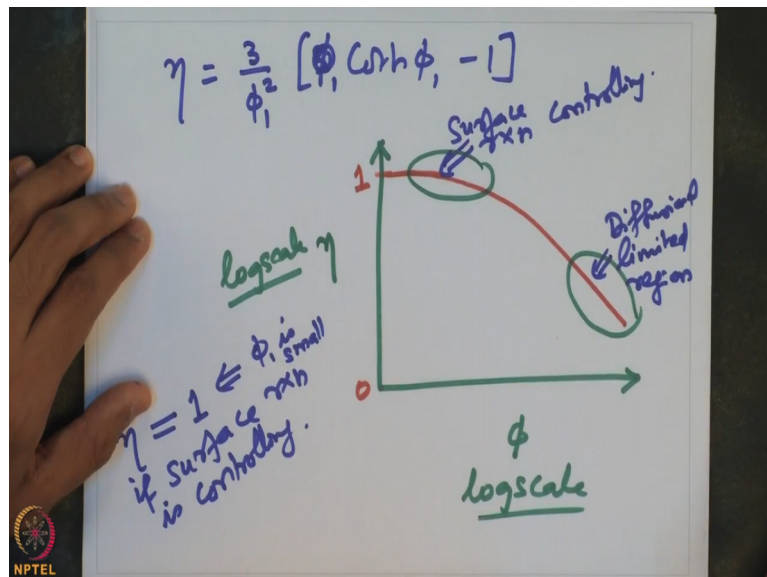 η = 3/φ₁² [φ₁ Coth φ₁ - 1]
Surface
rxn controlling.
1
Diffusional
limited
region
logscale η
η = 1 ⇐ φ₁ is
small
if surface rxn
is controlling.
0
φ
logscale
NPTEL